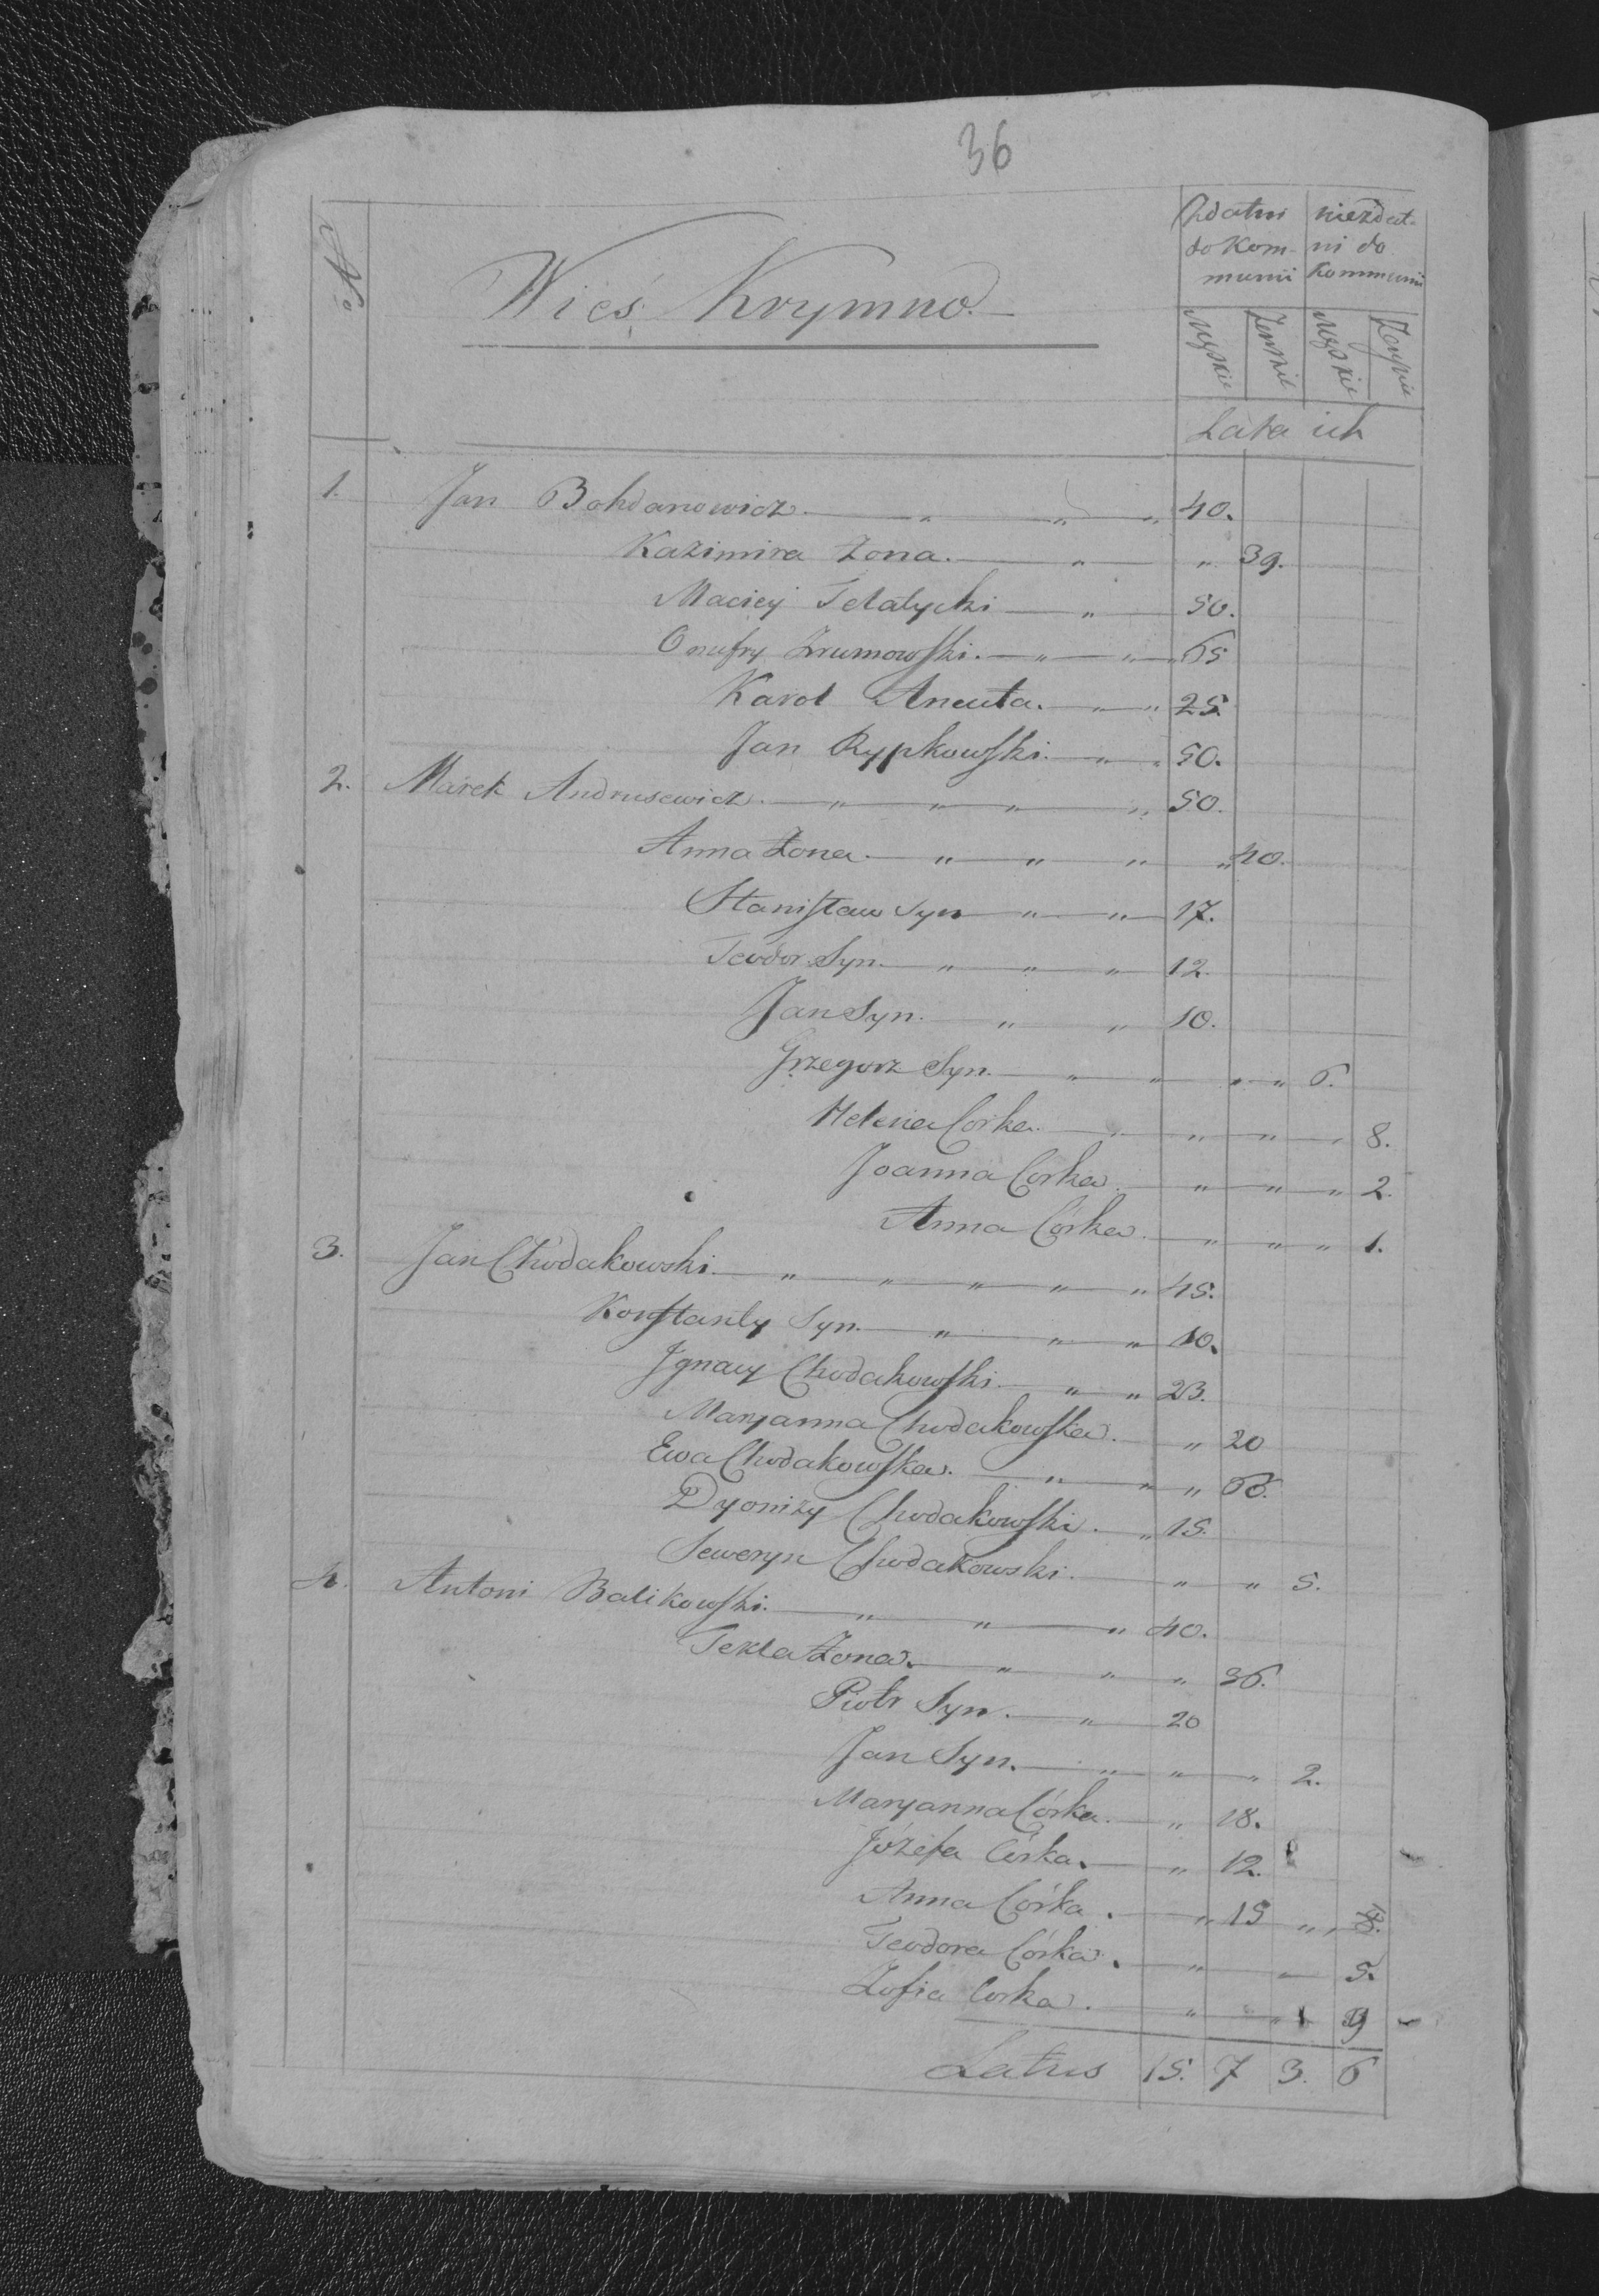 36
No
Wieś Krymno.
Zdatni do Kommunii
niezdatni do Kommunii
Męskie Żeńskie Męskie Żeńskie
Lata ich
1. Jan Bohdanowicz. — „ — „ — „ 40.
Kazimira Żona. — „ — „ 39.
Maciey Telatycki — „ — 50.
Onufry — „ — „ — „ 65
Karol Aneuta. — „ — „ 25.
Jan Rypkowski. — „ — „ 50.
2. Marek Andrusewicz. — „ — „ — „ — „ 50.
Anna Żona — „ — „ — „ — „ 40.
Stanisław Syn — „ — „ — 17.
Teodor Syn. — „ — „ — „ 12.
Jan Syn. — „ — „ 10.
Grzegorz Syn. — „ — „ — „ — „ 6.
Helena Corka. — „ — „ — „ — „ 8.
Joanna Corka. — „ — „ — „ 2.
Anna Córka. — „ — „ — „ 1.
3. Jan Chodakowski. — „ — „ — „ — „ — „ 45.
Konstanty Syn. — „ — „ — „ 10.
Ignacy Chodakowski — „ — „ 23.
Maryanna Chodakowska. — „ 20
Ewa Chodakowska. — „ — „ — „
Dyonizy Chodakowski. — „ 15.
Seweryn Chodakowski. — „ — „ 5.
4. Antoni Balikowski. — „ — „ — „ 40.
Tekla Żona. — „ — „ — „ 36.
Piotr Syn. — „ — 20
Jan Syn. — „ — „ — „ 2.
Maryanna Córka. — „ 18.
Józefa Córka. — „ 12.
Anna Córka. — „ 15 „ „
Teodora Córka. — „ — 5.
Zofia Corka. — „ — „ 9
Latus 15. 7 3. 6